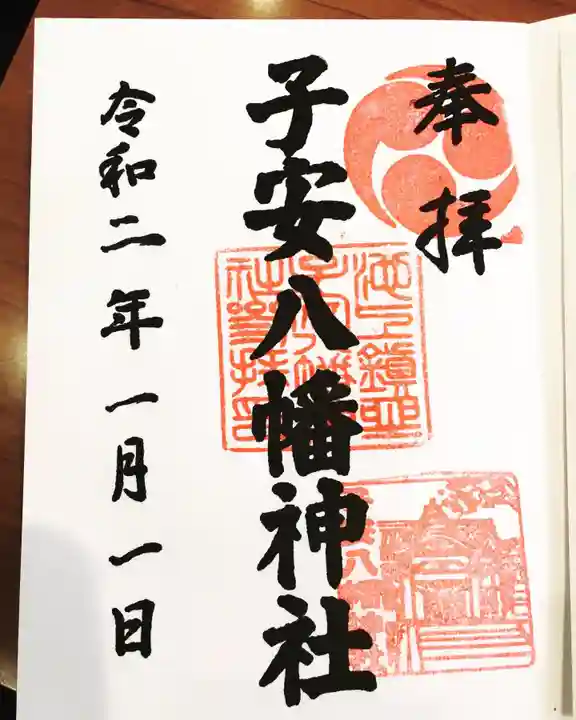 奉拝
子安八幡神社
令和二年一月一日